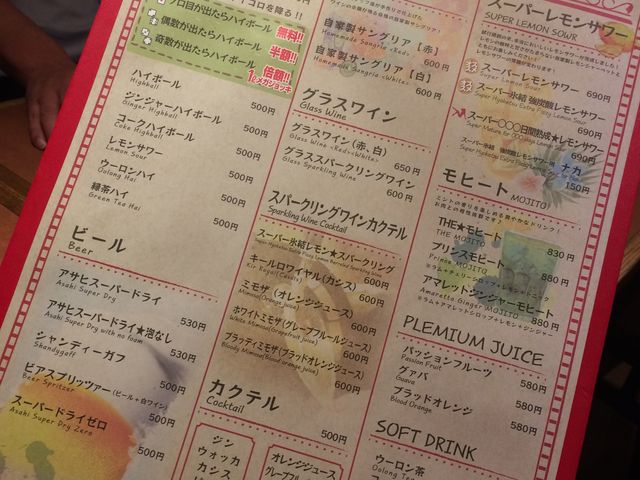 ゾロ目が出たらハイボール 無料!!
偶数が出たらハイボール 半額!!
奇数が出たらハイボール 倍額!!
1ℓメガジョッキ
ハイボール
Highball 500円
ジンジャーハイボール
Ginger Highball 500円
コークハイボール
Coke Highball 500円
レモンサワー
Lemon Sour 500円
ウーロンハイ
Oolong Hai 500円
緑茶ハイ
Green Tea Hai 500円
ビール
Beer
アサヒスーパードライ
Asahi Super Dry 530円
アサヒスーパードライ★泡なし
Asahi Super Dry with no foam 530円
シャンディーガフ
Shandygaff 500円
ビアスプリッツァー(ビール+白ワイン)
Beer Spritzer 500円
スーパードライゼロ
Asahi Super Dry Zero 500円
自家製サングリア【赤】
Homemade Sangria <Red> 640円
自家製サングリア【白】
Homemade Sangria <White> 640円
グラスワイン
Glass Wine
グラスワイン(赤、白)
Glass Wine <Red> <White> 650円
グラススパークリングワイン
Glass Sparkling Wine 600円
スパークリングワインカクテル
Sparkling Wine Cocktail
スーパー氷結レモン★スパークリング
600円
キールロワイヤル(カシス)
Kir Royal(Cassis) 600円
ミモザ(オレンジジュース)
Mimosa(Orange Juice) 600円
ホワイトミモザ(グレープフルーツジュース)
White Mimosa(Grapefruit Juice) 600円
ブラッディミモザ(ブラッドオレンジジュース)
Bloody Mimosa(Blood Orange Juice) 600円
カクテル
Cocktail 500円
ジン
ウォッカ
カシス
オレンジジュース
グレープフル
スーパーレモンサワー
SUPER LEMON SOUR
スーパーレモンサワー
Super Lemon Sour 690円
スーパー氷結 強炭酸レモンサワー
Super Hyoketsu Extra Fizzy Lemon Sour 690円
スーパー○○○日間熟成★レモンサワー
690円
スーパー氷結 強炭酸レモンサワー用 ナカ
150円
モヒート
MOJITO
ミントの香りを楽しめる爽やかなドリンク!
お肉との相性抜群です♪
THE★モヒート
THE MOJITO 830円
プリンスモヒート
Prince MOJITO 880円
※ラム+チェリーシロップ+レモン+トニック
アマレットジンジャーモヒート
Amaretto Ginger MOJITO 880円
※ラム+アマレットシロップ+レモン+ジンジャー
PLEMIUM JUICE
パッションフルーツ
Passion Fruit 580円
グァバ
Guava 580円
ブラッドオレンジ
Blood Orange 580円
SOFT DRINK
ウーロン茶
Oolong Tea